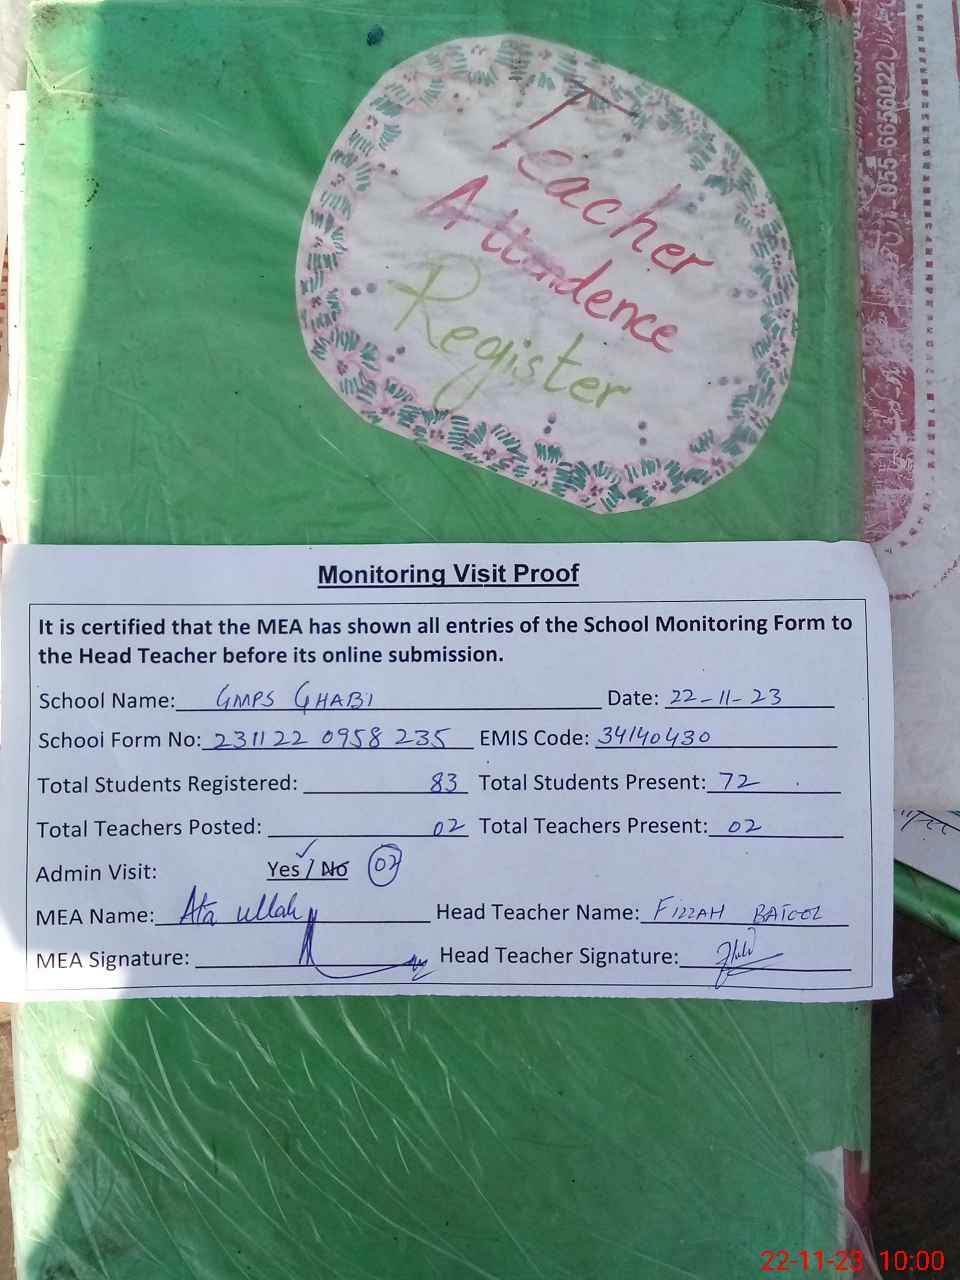 Teacher
Attendence
Register
055-6656022
Monitoring Visit Proof
It is certified that the MEA has shown all entries of the School Monitoring Form to
the Head Teacher before its online submission.
School Name: GMPS GHABI Date: 22-11-23
School Form No: 231122 0958 235 EMIS Code: 34140430
Total Students Registered: 83 Total Students Present: 72
Total Teachers Posted: 02 Total Teachers Present: 02
Admin Visit: Yes / No 02
MEA Name: Ata ullah Head Teacher Name: FIZZAH BATOOL
MEA Signature: Head Teacher Signature:
22-11-23 10:00